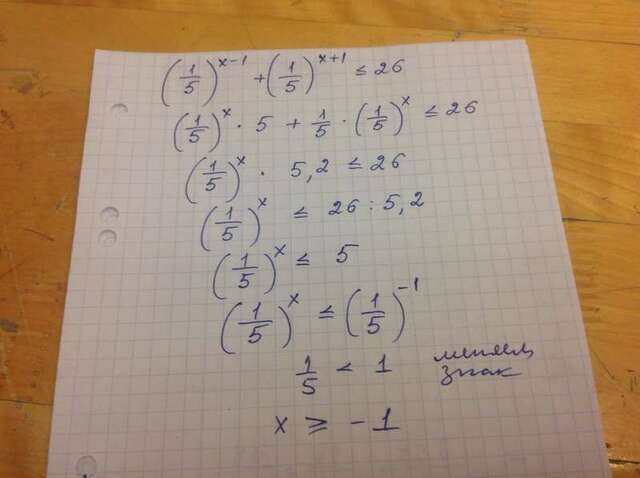 (1/5)^(x-1) + (1/5)^(x+1) ≤ 26
(1/5)^x · 5 + 1/5 · (1/5)^x ≤ 26
(1/5)^x · 5,2 ≤ 26
(1/5)^x ≤ 26 : 5,2
(1/5)^x ≤ 5
(1/5)^x ≤ (1/5)^(-1)
1/5 < 1 меняем
знак
x ≥ -1